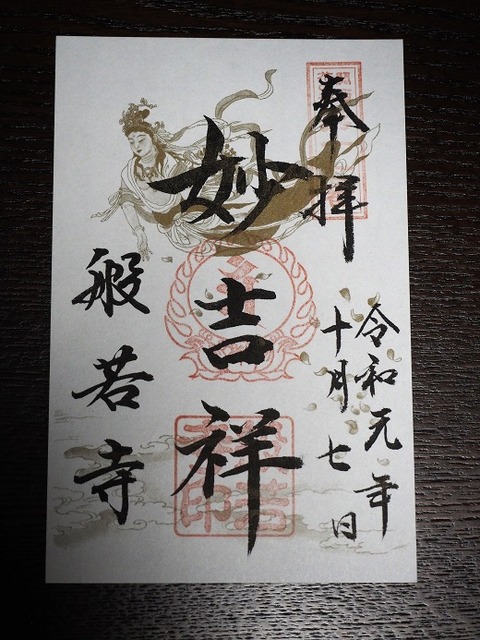 奉拝
令和元年
十月七日
妙吉祥
般若寺